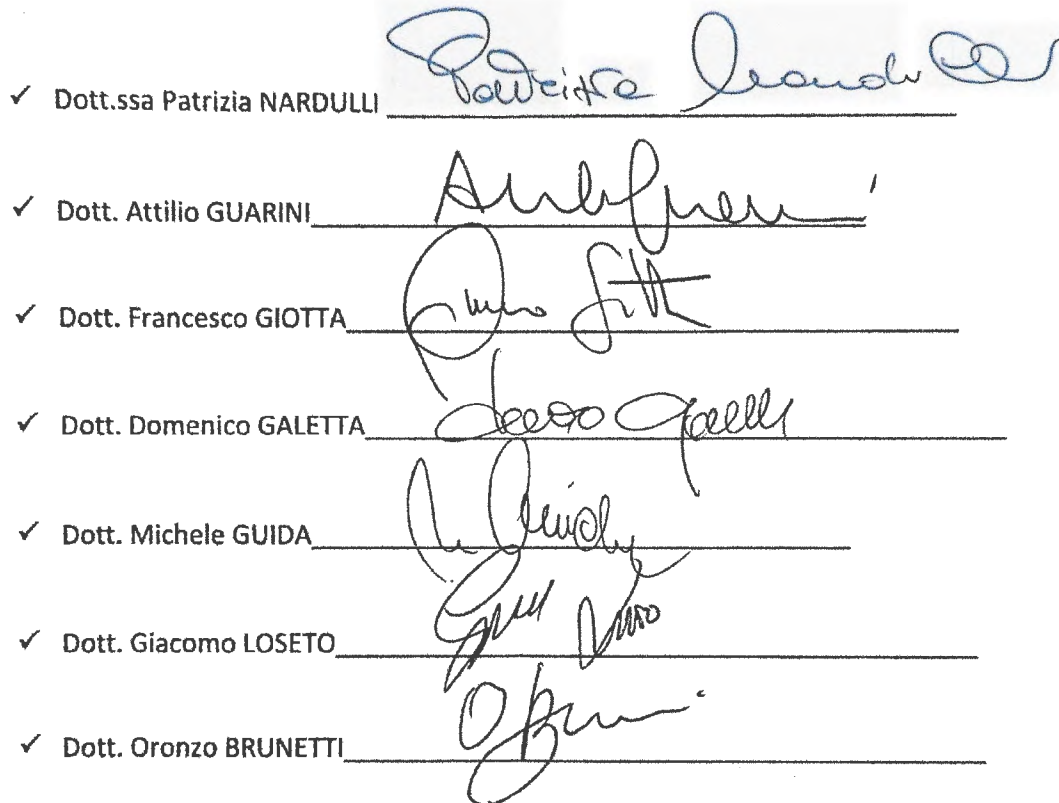 ✓ Dott.ssa Patrizia NARDULLI Patrizia Nardulli
✓ Dott. Attilio GUARINI
✓ Dott. Francesco GIOTTA
✓ Dott. Domenico GALETTA
✓ Dott. Michele GUIDA
✓ Dott. Giacomo LOSETO
✓ Dott. Oronzo BRUNETTI